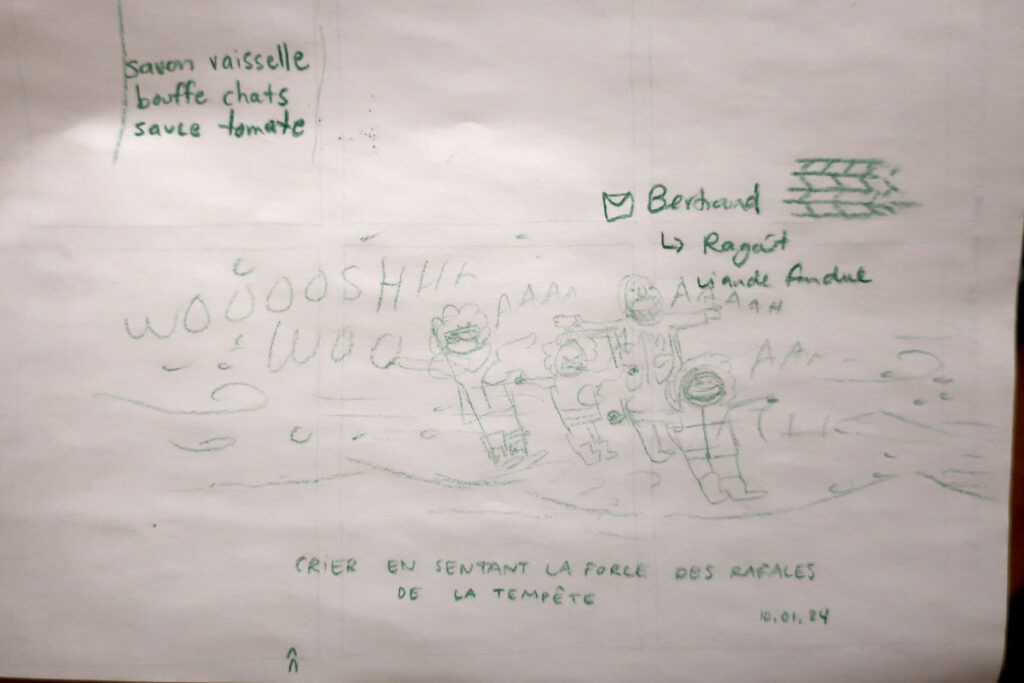 savon vaisselle
bouffe chats
sauce tomate
Bertrand
↳ Ragoût
viande fondue
WOOOOSHHHH
WOO
AAAA
AAAAAH
AAA
CRIER EN SENTANT LA FORCE DES RAFALES
DE LA TEMPÊTE
10.01.24